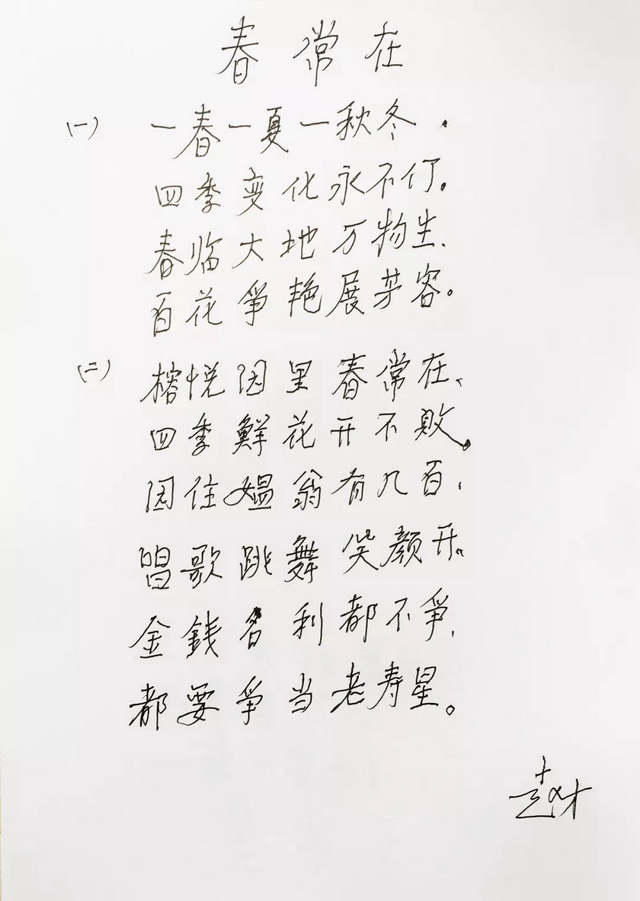 春常在
(一) 一春一夏一秋冬.
四季变化永不仃。
春临大地万物生、
百花爭艳展芳容。
(二) 榕悦园里春常在、
四季鮮花开不敗。
园住媪翁有几百,
唱歌跳舞笑颜开。
金錢名利都不爭,
都要爭当老寿星。